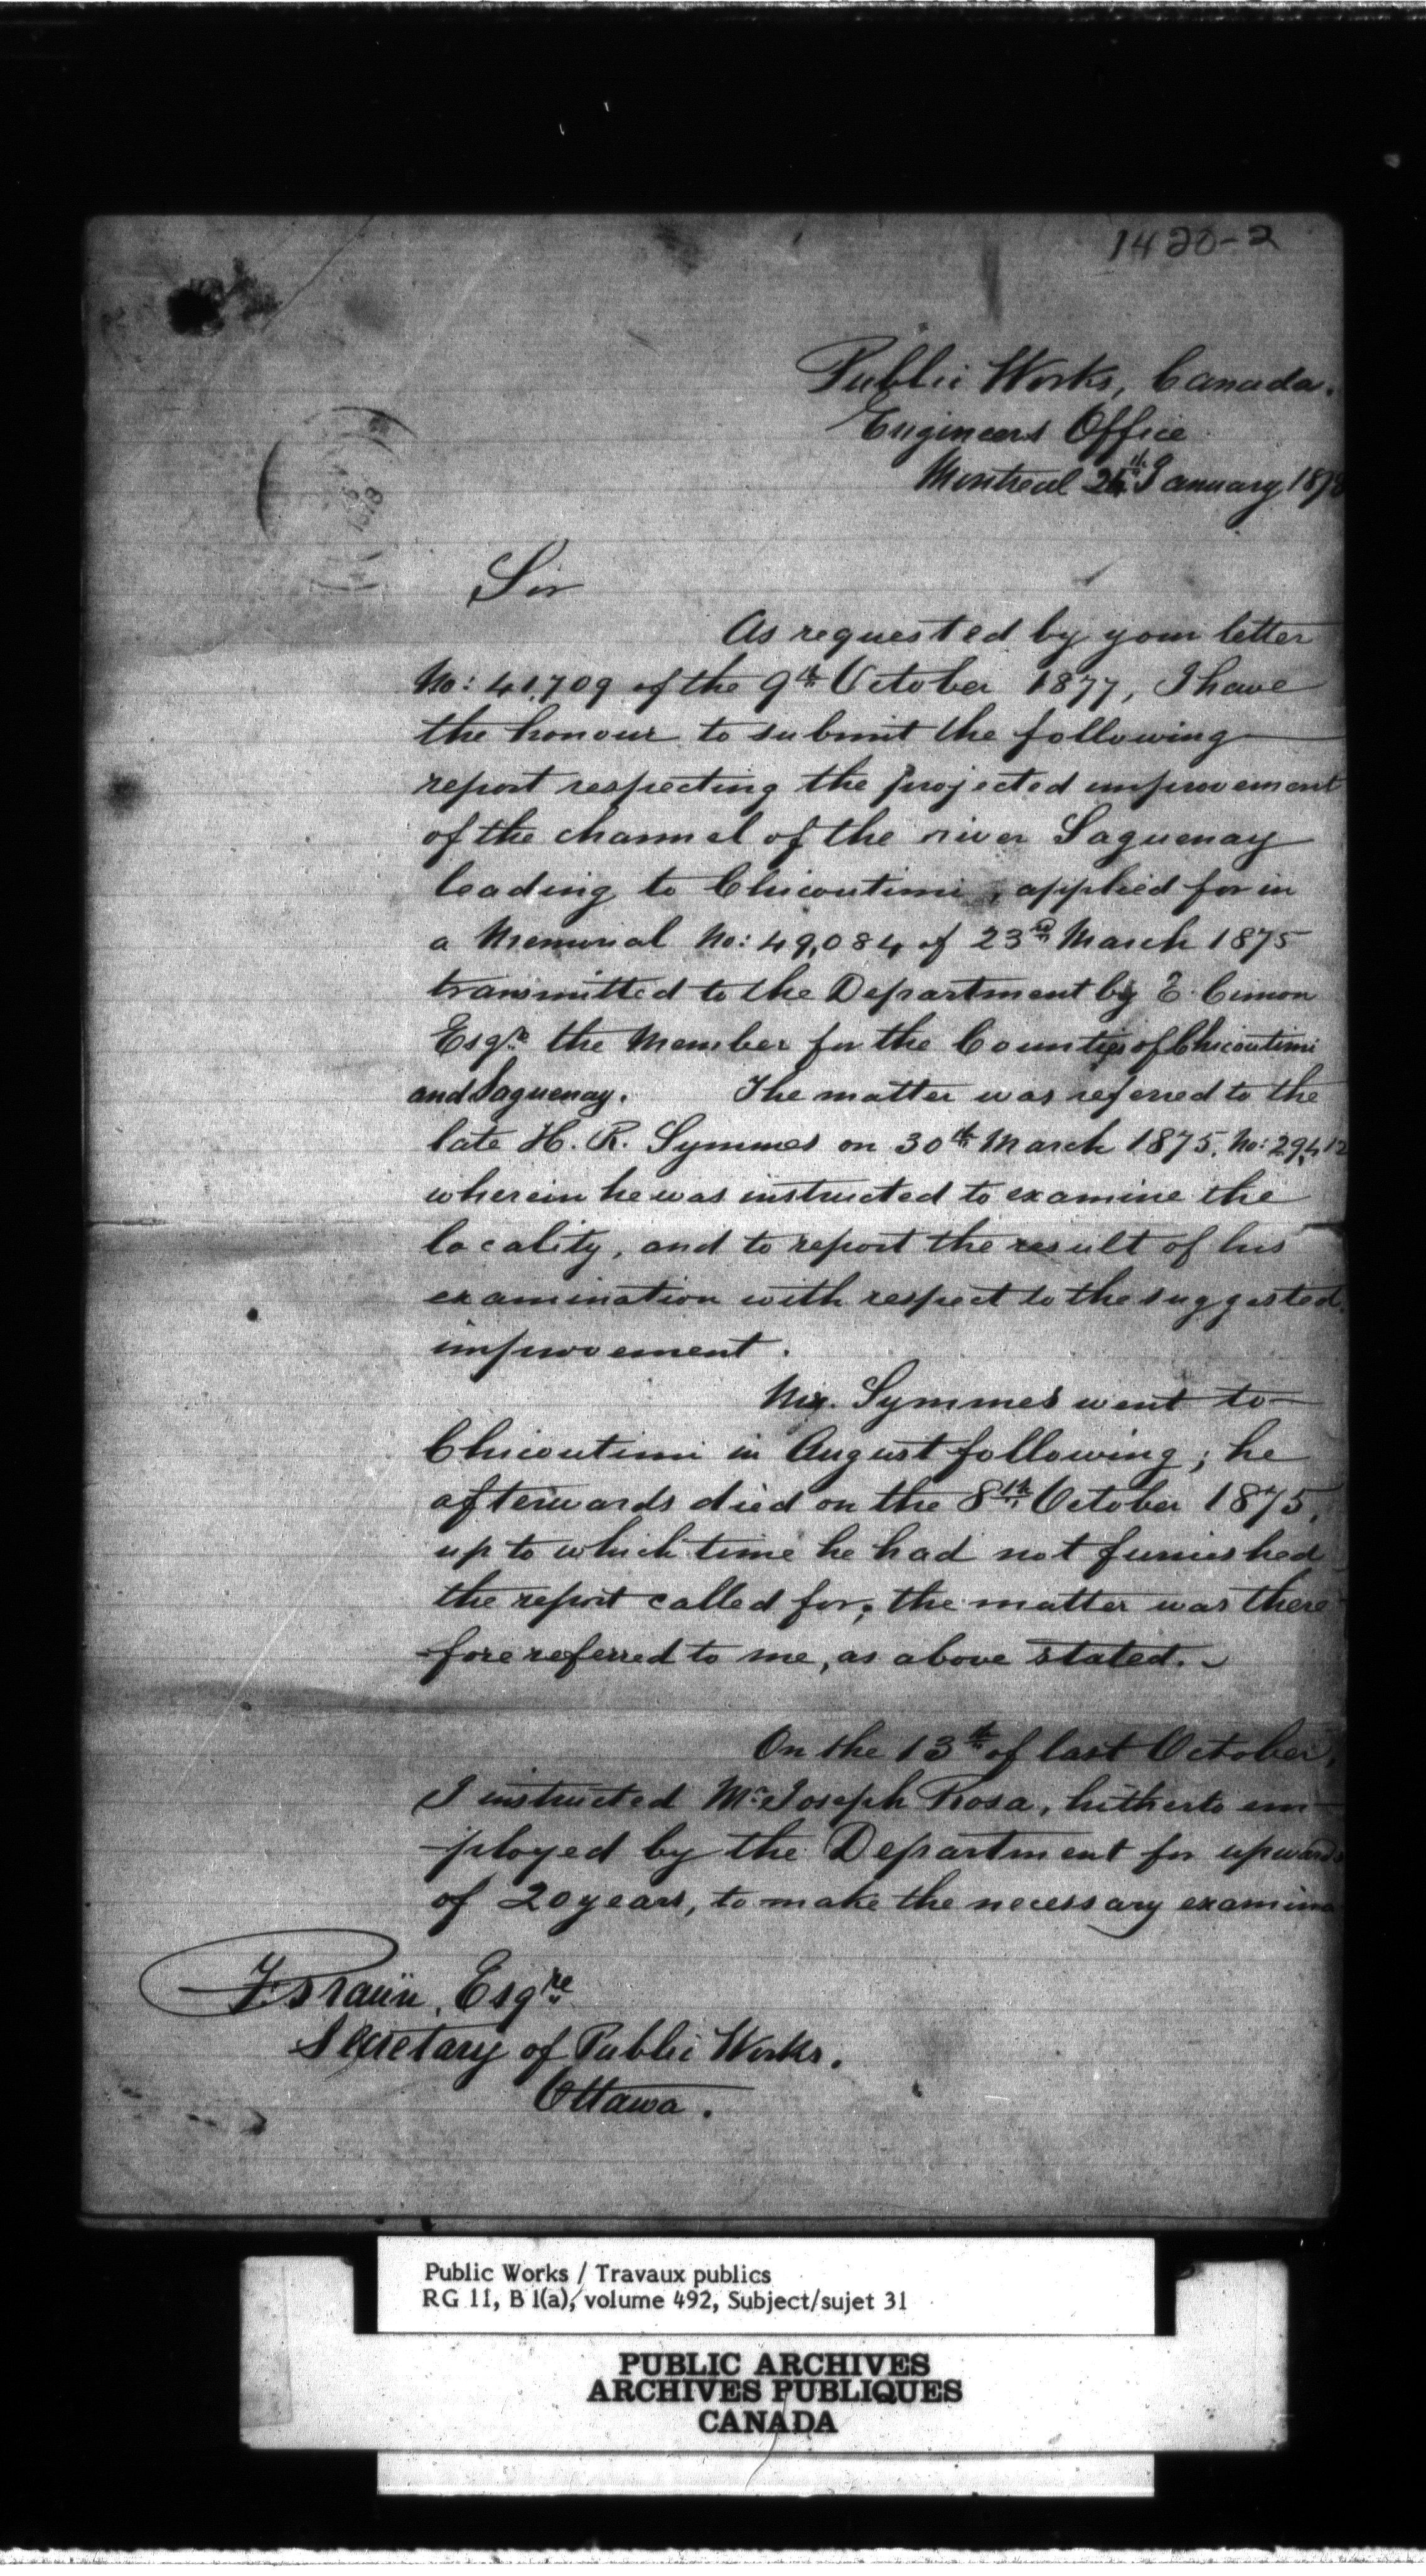 1420-2
Public Works, Canada.
Engineers Office
Montreal 24th January 1878
1878
Sir
As requested by your letter
No: 41,709 of the 9th October 1877, I have
the honour to submit the following
report respecting the projected improvement
of the channel of the river Saguenay
leading to Chicoutimi, applied for in
a Memorial No: 49,084 of 23rd March 1875
transmitted to the Department by E. Cimon
Esqre the Member for the Counties of Chicoutimi
and Saguenay. The matter was referred to the
late H. R. Symmes on 30th March 1875, No: 29,412
wherein he was instructed to examine the
locality, and to report the result of his
examination with respect to the suggested
improvement.
Mr. Symmes went to
Chicoutimi in August following; he
afterwards died on the 8th October 1875,
up to which time he had not furnished
the report called for; the matter was there
-fore referred to me, as above stated.
On the 13th of last October,
I instructed Mr. Joseph Rosa, hitherto em-
-ployed by the Department for upwards
of 20 years, to make the necessary examina
F. Braün, Esqre
Secretary of Public Works.
Ottawa.
Public Works / Travaux publics
RG 11, B 1(a), volume 492, Subject/sujet 31
PUBLIC ARCHIVES
ARCHIVES PUBLIQUES
CANADA